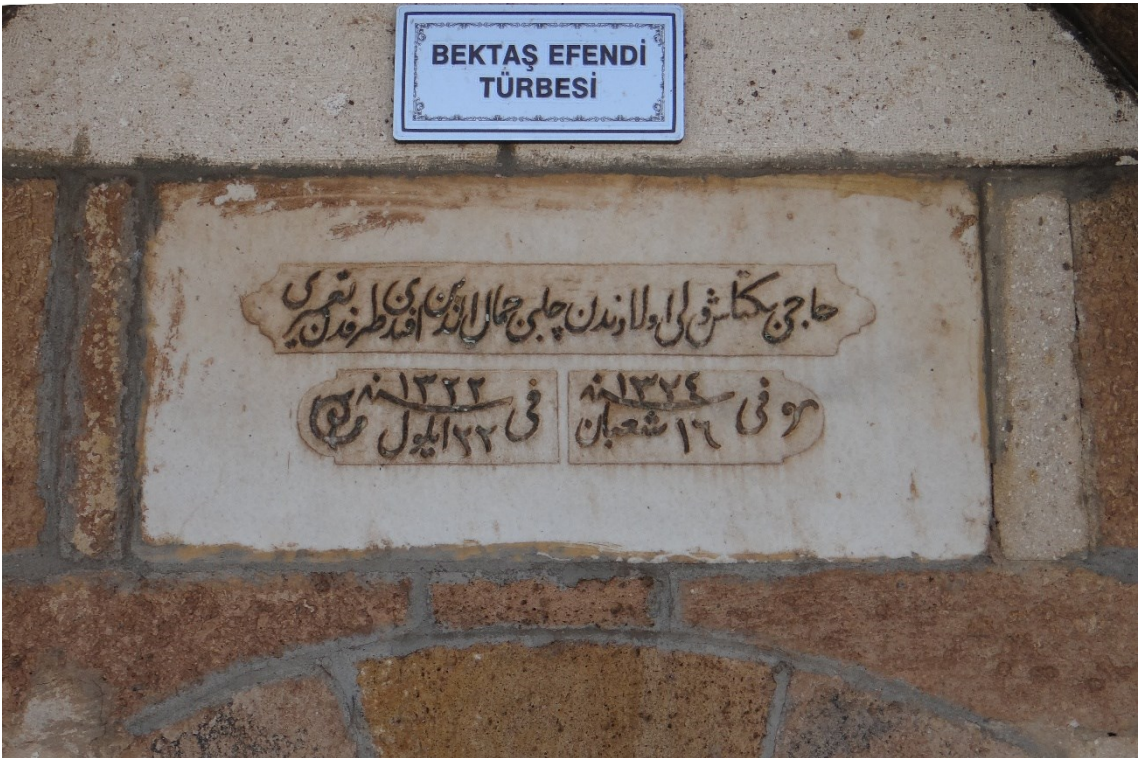 BEKTAŞ EFENDİ
TÜRBESİ
حاجی بکتاش ولی اولادندن چلبی جمال الدین افندی طرفندن تعمیری
و فی ١٦ شعبان سنه ١٣٢٤
فی ٢٢ ایلول سنه ١٣٢٢